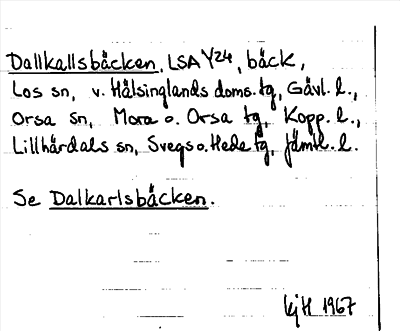 Dallkallsbäcken, LSA Y24, bäck,
Los sn, v. Hälsinglands doms. tg, Gävl. l.,
Orsa sn, Mora o. Orsa tg, Kopp. l.,
Lillhärdals sn, Svegs o. Hede tg, Jämtl. l.
Se Dalkarlsbäcken.
kjH 1967